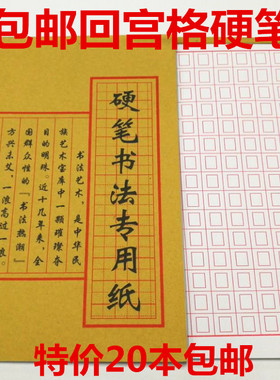 包邮回宫格硬笔
硬笔书法专用纸
书法艺术，是中华民
族艺术宝库中一颗璀璨夺
目的明珠。近十几年来，全
国群众性的『书法热潮』
方兴未艾，一浪高过一浪。
特价20本包邮